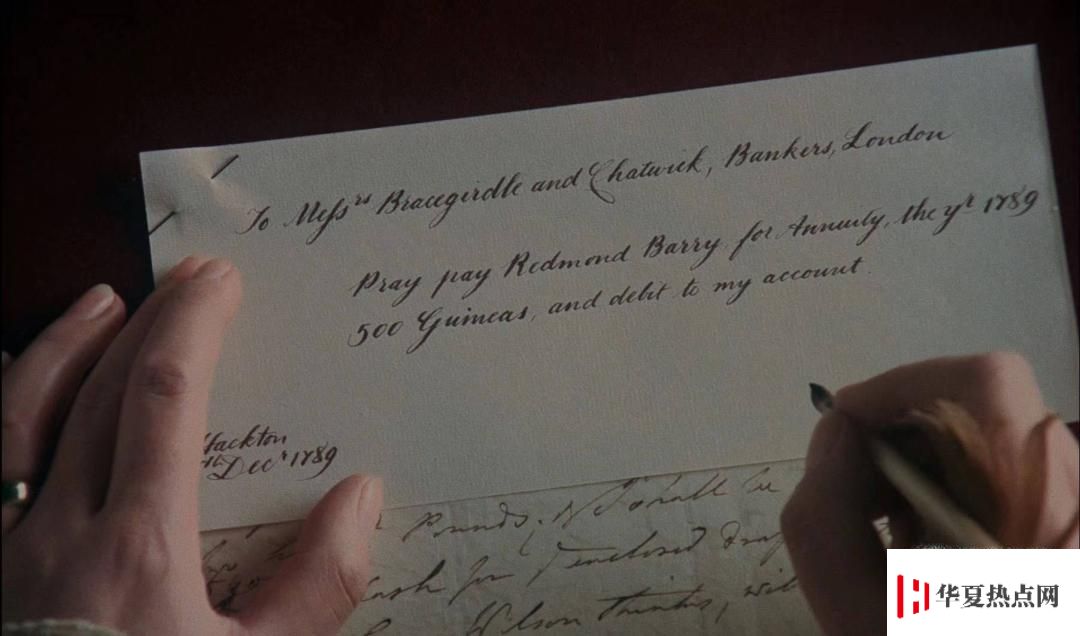 To Messrs Bracegirdle and Chatwick, Bankers, London
Pray pay Redmond Barry for Annuity, the yr 1789
500 Guineas, and debit to my account.
Hackton
th Decr 1789
Pounds, I shall be
for enclosed
Wilson thinks,
华夏热点网